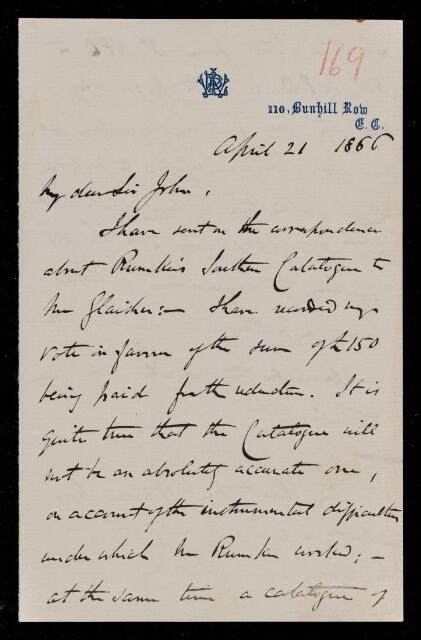 169
110, Bunhill Row
E. C.
April 21 1866
My dear Sir John,
I have sent on the correspondence
about Rumker's Southern Catalogue to
Mr Glaisher:— I have recorded my
vote in favour of the sum of £150
being paid for the reduction. It is
quite true that the Catalogue will
not be an absolutely accurate one,
on account of the instrumental difficulties
under which Mr Rumker worked;—
at the same time a catalogue of